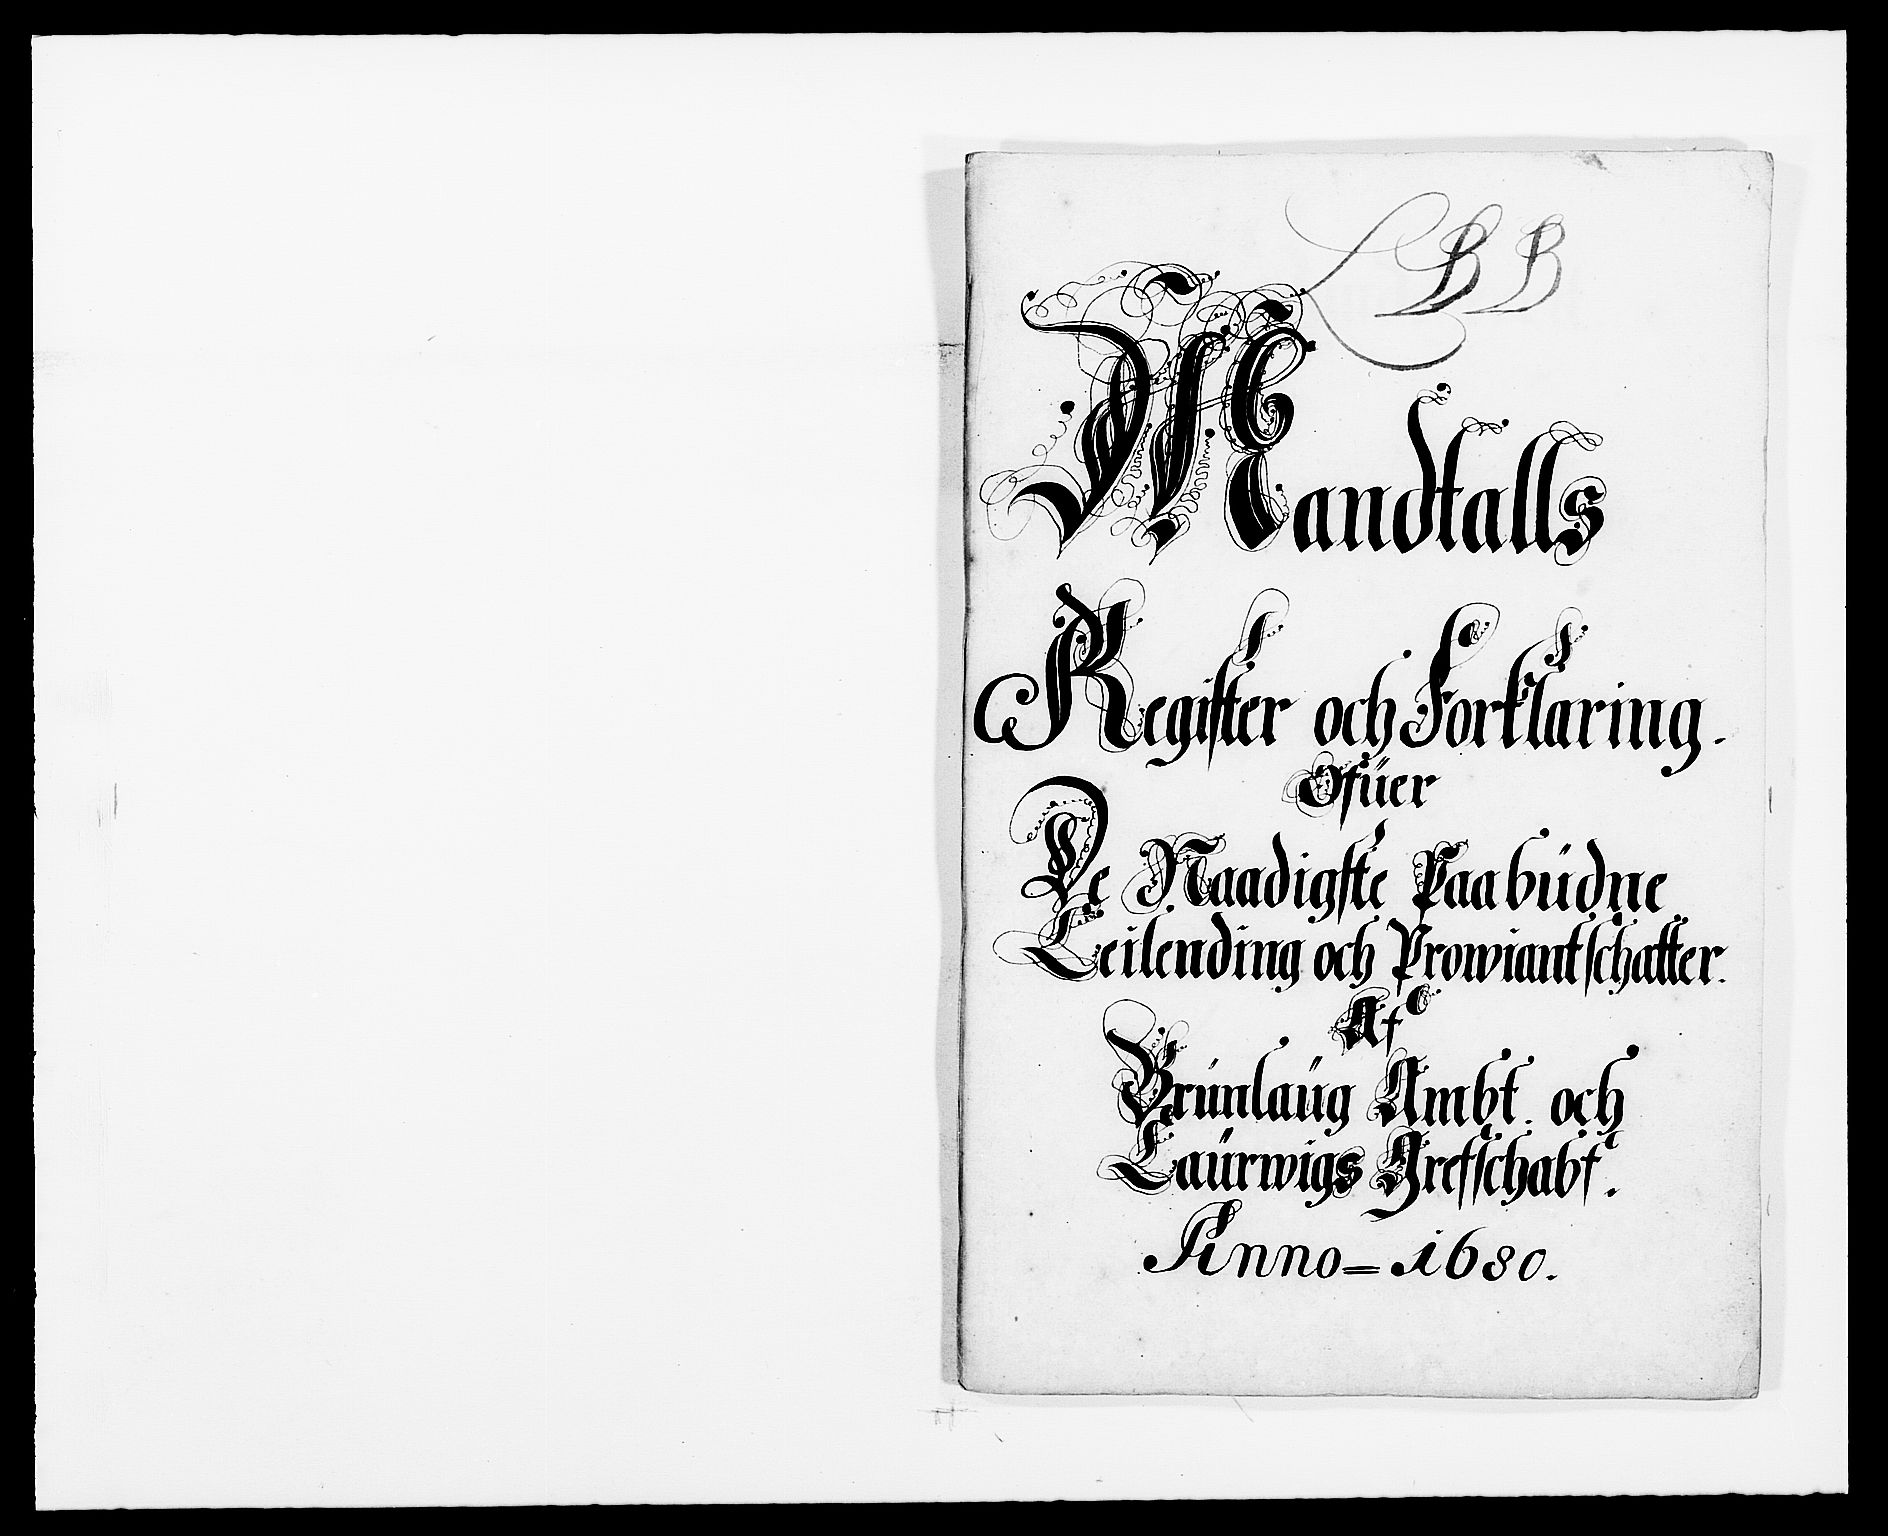 L B B
Mandtalls
Register och Forklaring.
Ofüer
De Naadigste Paabüdne
Leilending och Prowiantschatter.
Af
Brünlaüg Ambt. och
Laürwigs Grefschabt.
Anno = 1680.